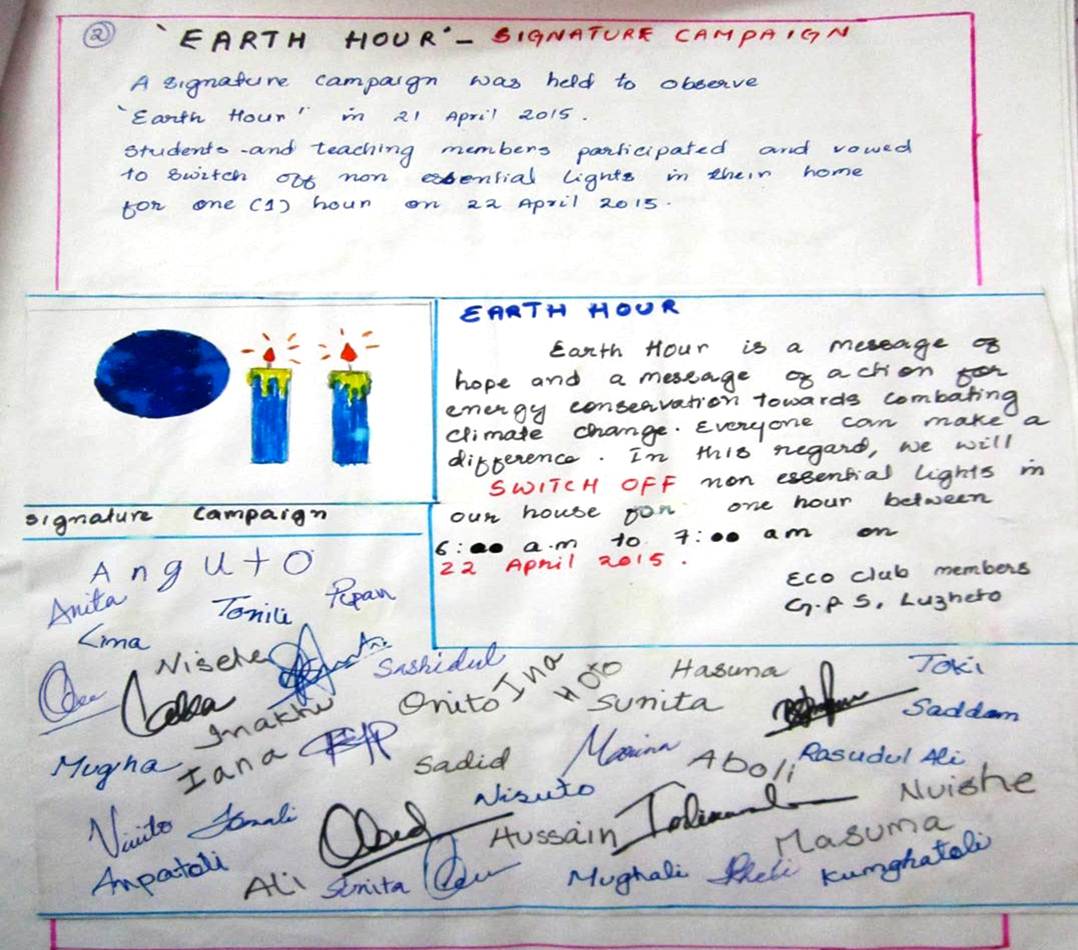 2 'EARTH HOUR' - SIGNATURE CAMPAIGN
A signature campaign was held to observe
'Earth Hour' in 21 April 2015.
Students and teaching members participated and vowed
to switch off non essential lights in their home
for one (1) hour on 22 April 2015.
EARTH HOUR
Earth Hour is a message of
hope and a message of action for
energy conservation towards combating
climate change. Everyone can make a
difference. In this regard, we will
SWITCH OFF non essential lights in
our house for one hour between
6:00 a.m to 7:00 am on
22 April 2015.
Eco club members
G.P.S, Luzheto
Signature Campaign
Anguto
Anita Tonili Pipan
Lima
Nisehe Sashidul Ina Hoto Hasuna Toki
Inakhu Onito Sunita Saddam
Mugha Iana Sadid Marina Aboli Rasudul Ali
Nisuto Nuishe
Hussain Masuma
Anpatoli Ali Sunita Mughali Kumghatoli